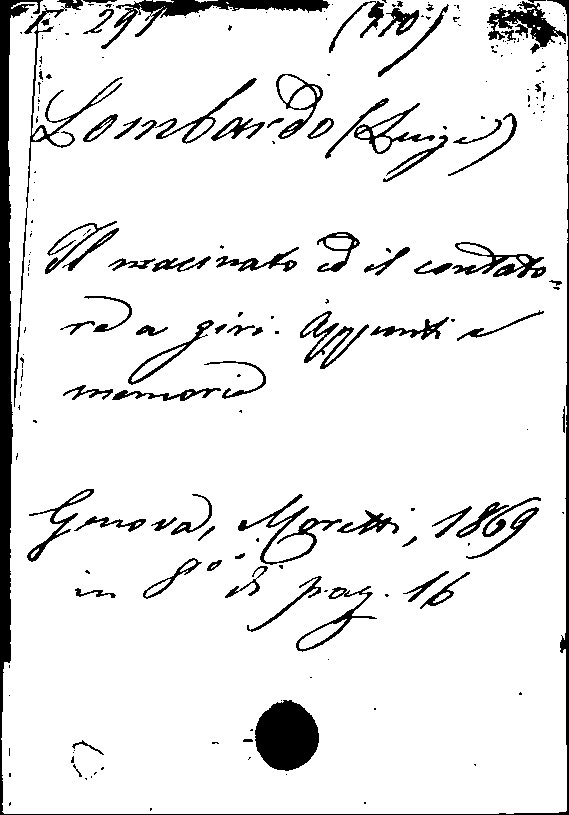 E 291 (770)
Lombardo (Luigi)
Il macinato ed il contato-
re a giri. Appunti e
memorie
Genova, Moretti, 1869
in 8º. di pag. 16